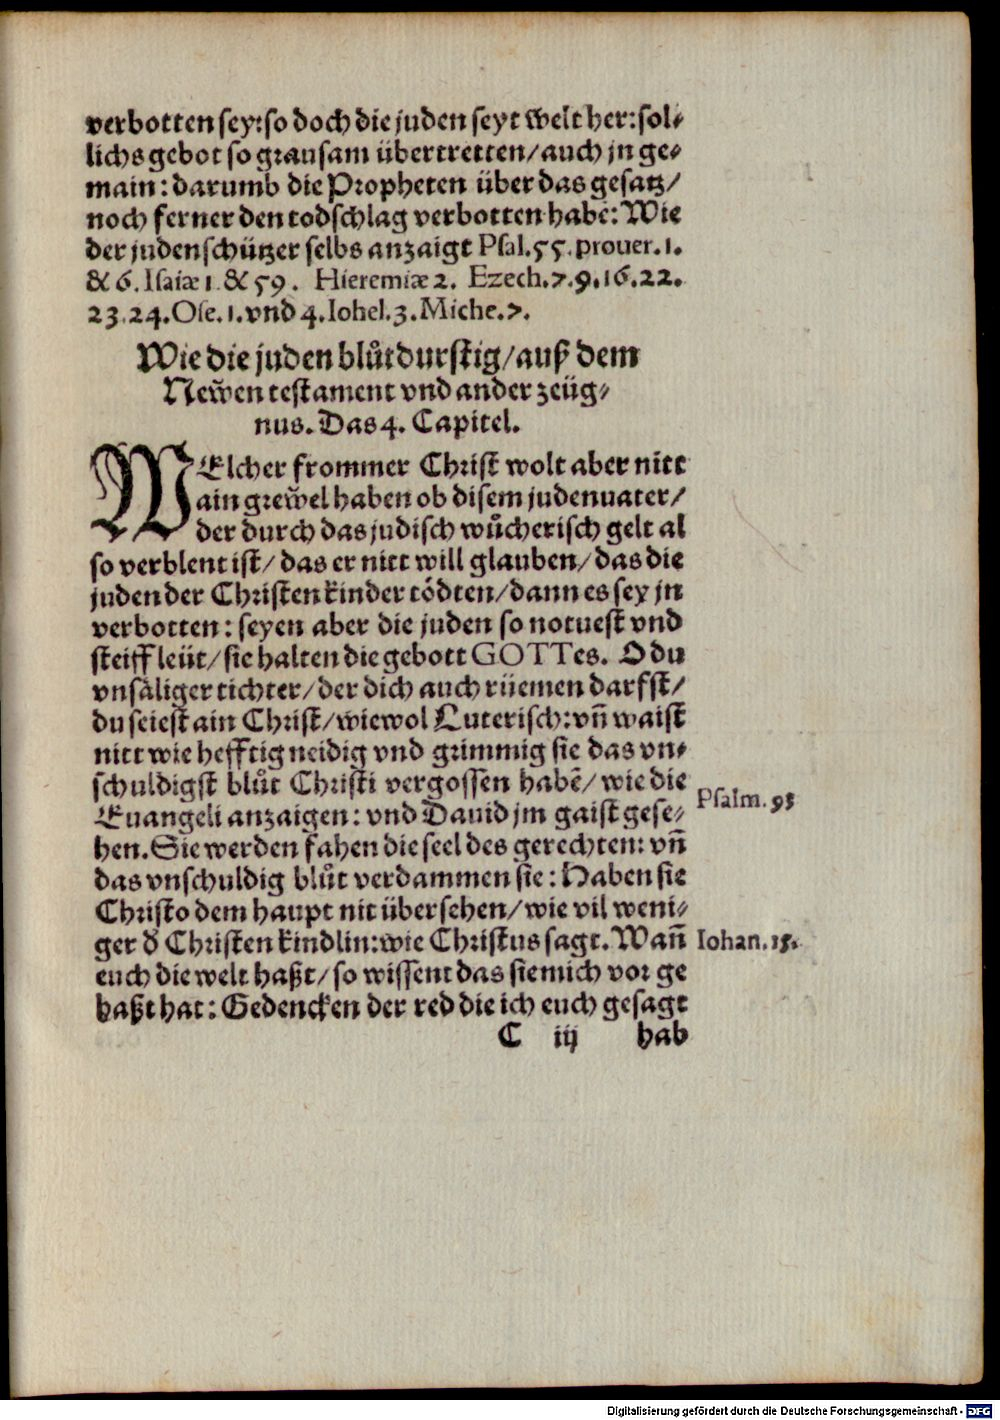 verbotten sey: so doch die juden seyt welt her: sol⸗
lichs gebot so grausam übertretten/ auch jn ge⸗
main: darumb die Propheten über das gesatz/
noch ferner den todschlag verbotten habē: Wie
der juden schützer selbs anzaigt Psal.55. prouer.1.
& 6. Isaiæ 1 & 59. Hieremiæ 2. Ezech.7.9.16.22.
23.24. Ose.1. vnd 4. Iohel.3. Miche.7.
Wie die juden blůtdurstig/ auß dem
Newen testament vnd ander zeüg⸗
nus. Das 4. Capitel.
WElcher frommer Christ wolt aber nitt
ain grewel haben ob disem judenuater/
der durch das judisch wůcherisch gelt al
so verblent ist/ das er nitt will glauben/ das die
juden der Christen kinder tödten/ dann es sey jn
verbotten: seyen aber die juden so notuest vnd
steiff leüt/ sie halten die gebott GOTTes. O du
vnsäliger tichter/ der dich auch rüemen darfst/
du seiest ain Christ/ wiewol Luterisch: vñ waist
nitt wie hefftig neidig vnd grimmig sie das vn⸗
schuldigst blůt Christi vergossen habē/ wie die
Euangeli anzaigen: vnd Dauid jm gaist gese⸗
hen. Sie werden fahen die seel des gerechten: vñ
das vnschuldig blůt verdammen sie: Haben sie
Christo dem haupt nit übersehen/ wie vil weni⸗
ger d̕ Christen kindlin: wie Christus sagt. Wañ
euch die welt haßt/ so wissent das sie mich vor ge
haßt hat: Gedencken der red die ich euch gesagt
C iij hab
Psalm. 93
Iohan. 15.
Digitalisierung gefördert durch die Deutsche Forschungsgemeinschaft - DFG